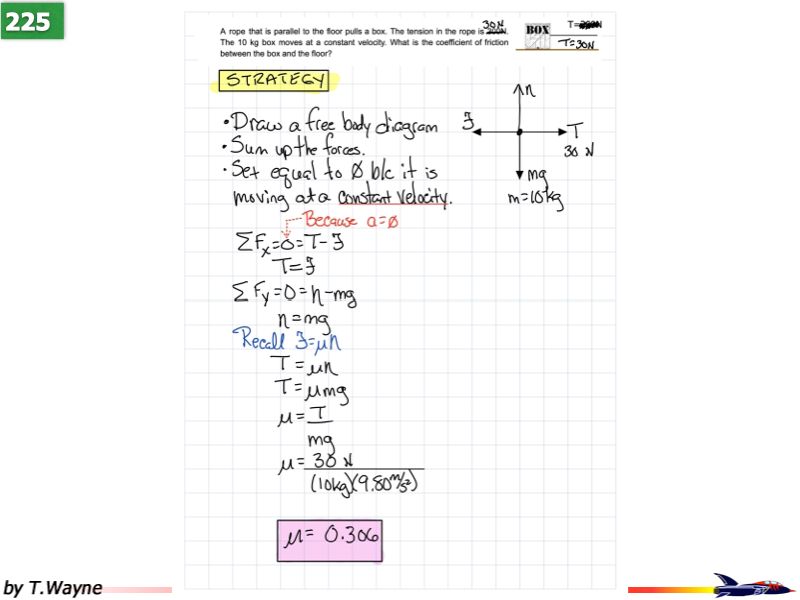 225
A rope that is parallel to the floor pulls a box. The tension in the rope is 30N
The 10 kg box moves at a constant velocity. What is the coefficient of friction
between the box and the floor?
BOX
T=
T=30N
STRATEGY
• Draw a free body diagram
• Sum up the forces.
• Set equal to Ø b/c it is
moving at a constant velocity.
Because a=Ø
ΣFx=0=T-F
T=F
ΣFy=0=n-mg
n=mg
Recall F=μn
T=μn
T=μmg
μ=T
mg
μ=30 N
(10kg)(9.80m/s²)
μ= 0.306
n
F
T
30 N
mg
m=10kg
by T.Wayne